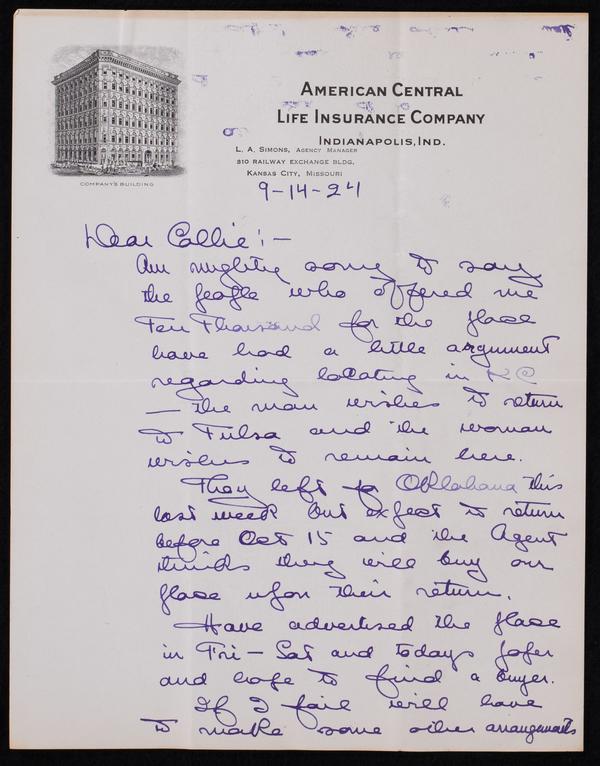 AMERICAN CENTRAL
LIFE INSURANCE COMPANY
INDIANAPOLIS, IND.
L. A. SIMONS, AGENCY MANAGER
810 RAILWAY EXCHANGE BLDG.
KANSAS CITY, MISSOURI
COMPANY'S BUILDING
9-14-24
Dear Collie:-
Am mighty sorry to say
the people who offered me
Ten Thousand for the place
have had a little argument
regarding locating in KC
— the man wishes to return
to Tulsa and the woman
wishes to remain here.
They left for Oklahoma this
last week but expect to return
before Oct 15 and the Agent
thinks they will buy our
place upon their return.
Have advertised the place
in Fri - Sat and todays paper
and hope to find a buyer.
If I fail will have
to make some other arrangements